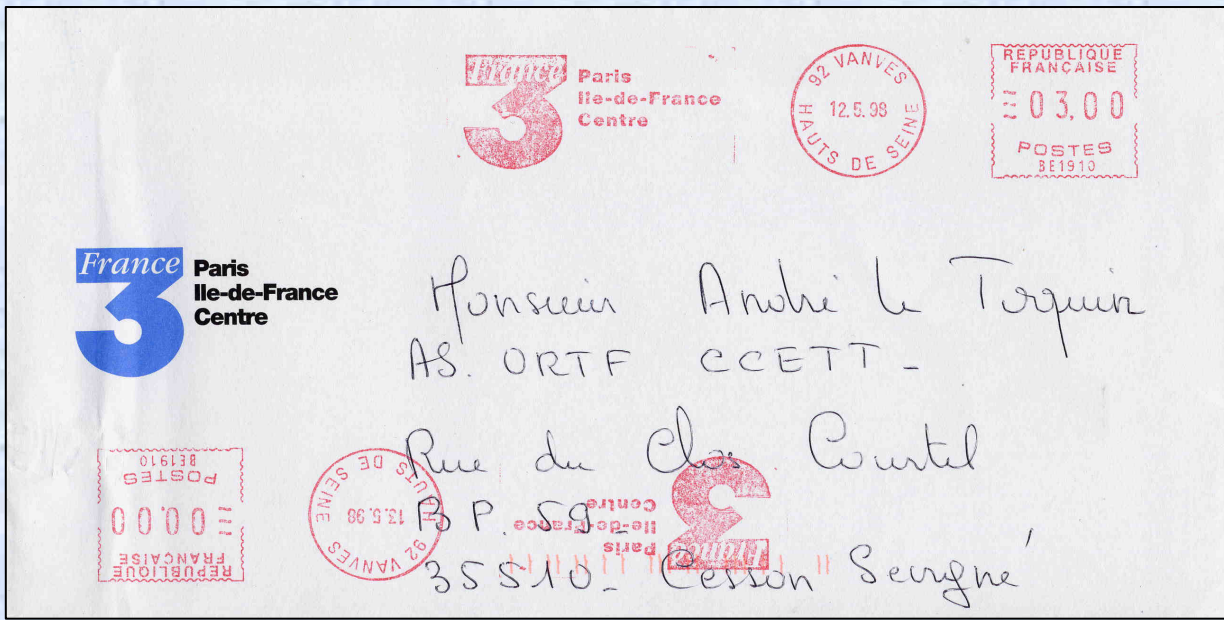 France 3 Paris
Ile-de-France
Centre
92 VANVES
12.5.98
HAUTS DE SEINE
REPUBLIQUE
FRANÇAISE
03,00
POSTES
BE1910
France 3 Paris
Ile-de-France
Centre
Monsieur André le Torquin
AS. ORTF CCETT -
Rue du Clos Courtel
B P. 59 -
35510 - Cesson Sevigné
REPUBLIQUE
FRANÇAISE
00,00
POSTES
BE1910
92 VANVES
13.5.98
HAUTS DE SEINE
France 3 Paris
Ile-de-France
Centre